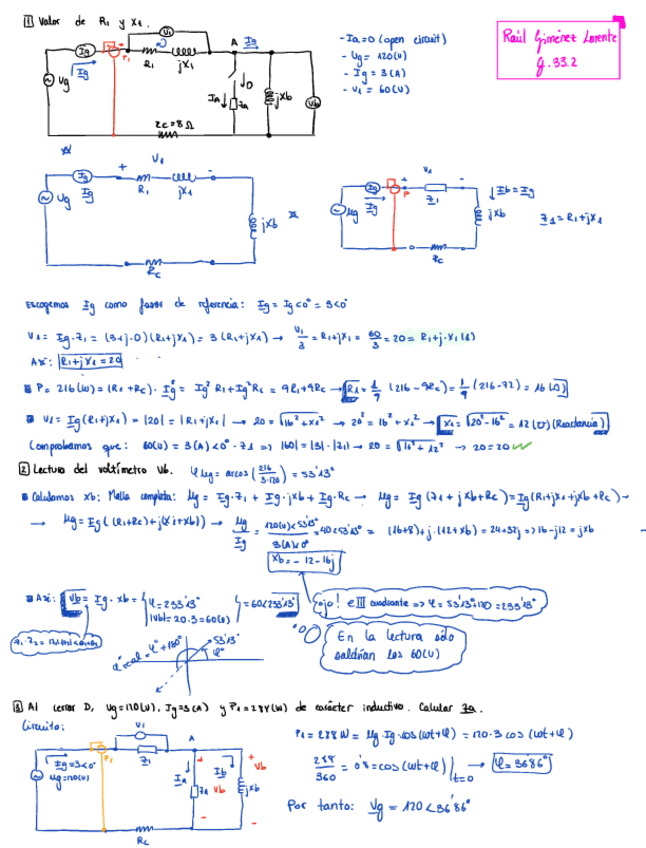 1 Valor de R1 y X1.
Ig
V1
A
Ig
Ig
P1
R1
jX1
Ug
Ia
D
Za
jXb
Vb
Rc=8Ω
- Ia=0 (open circuit)
- Ug = 120(V)
- Ig = 3(A)
- V1 = 60(V)
Raúl Giménez Lorente
g.33.2
+ V1 -
Ig
Ug
Ig
R1
jX1
jXb
Rc
Ig
V1
Ug
Ig
Z1
Ib=Ig
jXb
Rc
Z1 = R1+jX1
Escogemos Ig como fasor de referencia: Ig = Ig<0° = 3<0°
V1 = Ig·Z1 = (3+j·0)(R1+jX1) = 3(R1+jX1) → V1/3 = R1+jX1 = 60/3 = 20 = R1+j·X1(1)
Así: R1+jX1=20
P = 216(W) = (R1+Rc)·Ig² = Ig²R1+Ig²Rc = 9R1+9Rc → R1 = 1/9 (216-9Rc) = 1/9 (216-72) = 16(Ω)
V1 = Ig(R1+jX1) = |20| = |R1+jX1| → 20 = √16²+X1² → 20² = 16²+X1² → X1 = √20²-16² = 12(Ω)(Reactancia)
Comprobamos que: 60(V) = 3(A)<0°·Z1 => |60| = |3|·|Z1| → 20 = √16²+12² → 20=20
2 Lectura del voltímetro Vb. φUg = arcos(216/3·120) = 53'13°
Calculamos Xb: Malla completa: Ug = Ig·Z1 + Ig·jXb + Ig·Rc → Ug = Ig(Z1+jXb+Rc) = Ig(R1+jX1+jXb+Rc) →
→ Ug = Ig((R1+Rc)+j(X1+Xb)) → Ug/Ig = 120(V)<53'13°/3(A)<0° = 40<53'13° = (16+8)+j·(12+Xb) = 24+32j => 16-j12 = jXb →
Xb = -12-16j
Así: Vb = Ig·Xb = φ=233'13° |Vb| = 20·3=60(V) = 60<233'13°
¡ojo! el III cuadrante => φ = 53'13+180 = 233'13°
En la lectura sólo
saldrían los 60(V)
φ real = φ°+180°
53'13°
φ°
3 Al cerrar D, Ug=120(V), Ig=3(A) y P1=288(W) de carácter inductivo. Calcular Za.
Circuito:
V1
A
Ig=3<0°
Ug=120(V)
P1
Z1
Ia
Ib
Za
Vb
jXb
Vb
Rc
P1 = 288 W = Ug·Ig·cos(ωt+φ) = 120·3 cos(ωt+φ)
288/360 = 0'8 = cos(ωt+φ)|t=0 → φ=36'86°
Por tanto: Ug = 120<36'86°